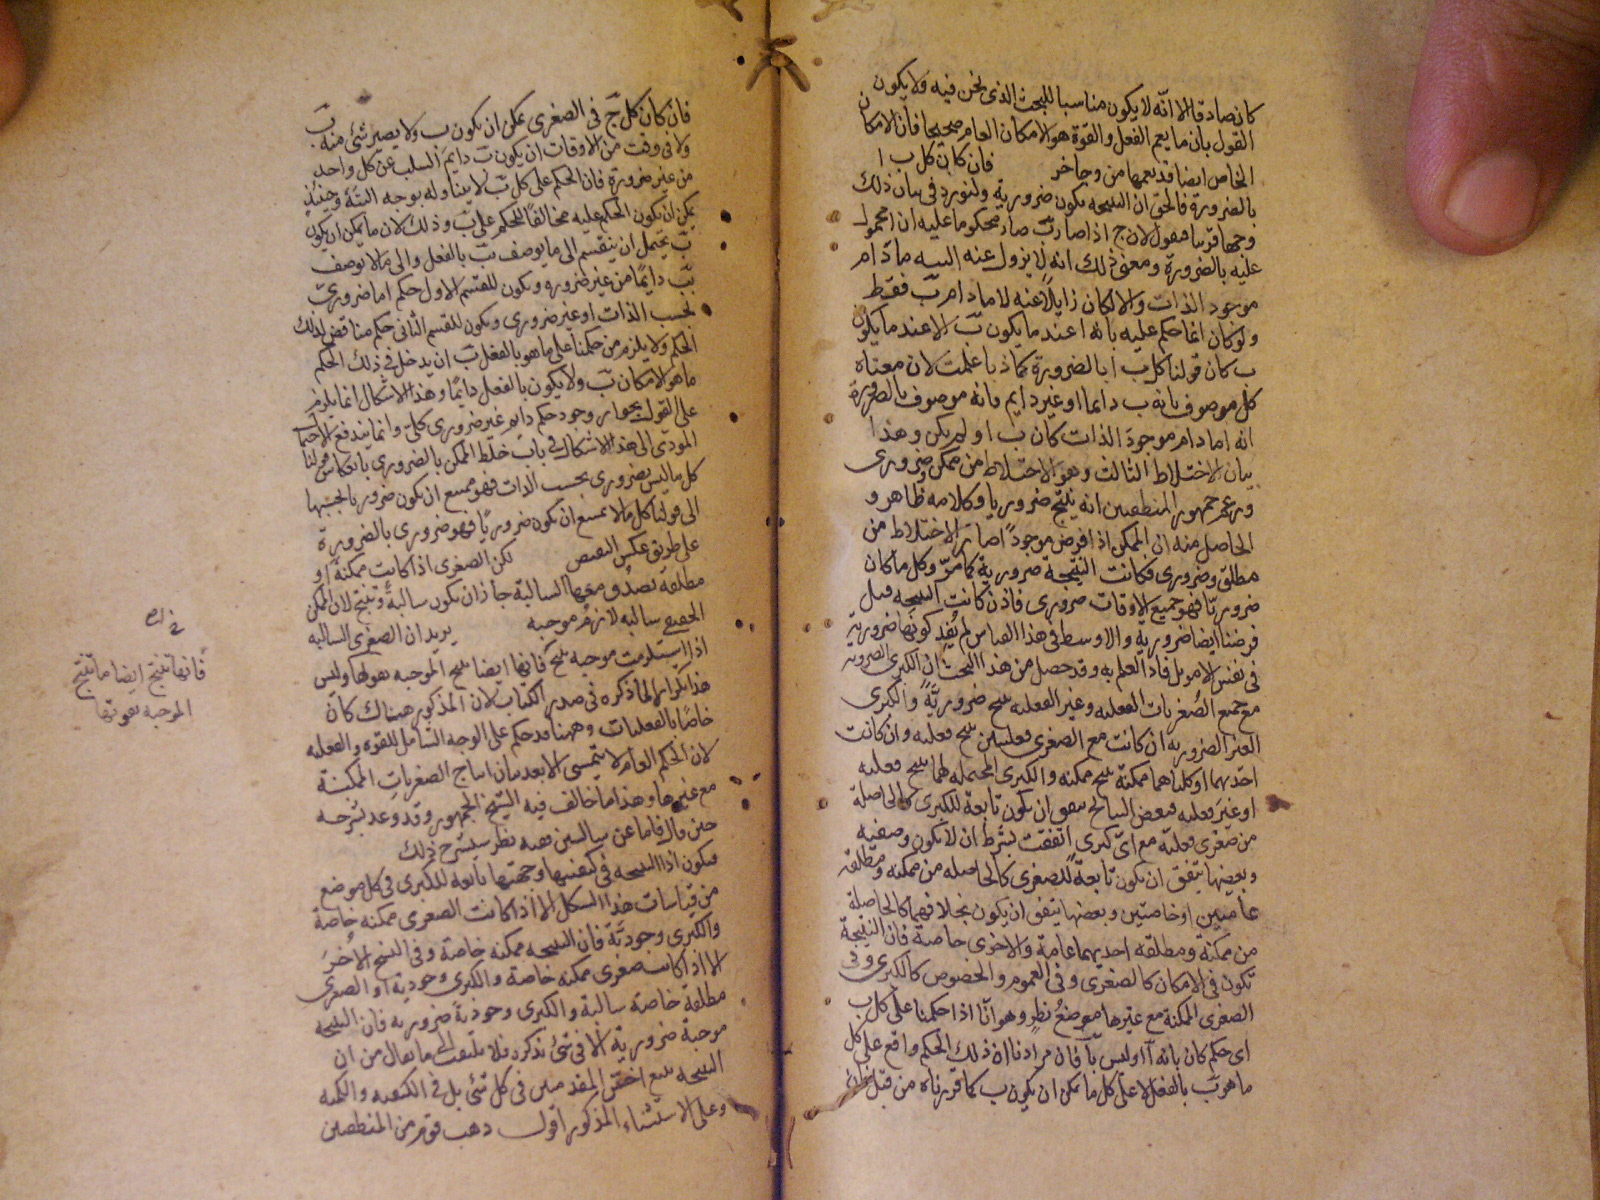 كان صادقا الا انه لا يكون مناسبا للبحث الذى نحن فيه ولا يكون
القول بان ما يعم الفعل والقوة هو الامكان العام صحيحا فان الامكان
الخاص ايضا قد يعمها من وجه اخر فان كان كل ب ا
بالضرورة فالحق ان النتيجه يكون ضرورية ولنورد فى بيان ذلك
وجها قريبا فنقول لان ج اذا صار ب صار محكوما عليه ان ا محمول
عليه بالضرورة ومعنى ذلك انه لا يزول عنه البته ما دام
موجود الذات ولا كان زايلا عنه لا ما دام ب فقط
ولو كان انما حكم عليه بانه ا عند ما يكون ب لا عند ما لا يكون
ب كان قولنا كل ب ا بالضرورة كاذبا على ما علمت لان معناه
كل موصوف بانه ب دائما او غير دايم فانه موصوف بالضرورة
انه ا ما دام موجود الذات كان ب او لم يكن وهذا
بيان الاختلاط الثالث وهو الاختلاط من ممكن وضرورى
وزعم جمهور المنطقيين انه ينتج ضروريا وكلامه ظاهر و
الحاصل منه ان الممكن اذا فرض موجودا صار الاختلاط من
مطلق وضرورى فكانت النتيجة ضرورية كما مر وكل ما كان
ضروريا فهو جميع الاوقات ضرورى فاذن كانت النتيجه قبل
فرضنا ايضا ضرورية والاوسط فى هذا القياس لم يفد كونها ضرورية
فى نفس الامر بل افاد العلم به وقد حصل من هذا البحث ان الكبرى الضرورية
مع جميع الصغريات الفعليه وغير الفعليه ينتج ضرورية والكبرى
الغير الضروريه ان كانت مع الصغرى فعليتين ينتج فعليه وان كانت
احديهما او كلتاهما ممكنة ينتج ممكنه والكبرى المحتمله لهما ينتج فعليه
او غير فعليه فبعض النتايج يتفق ان يكون تابعة للكبرى كالحاصلة
من صغرى فعلية مع اى كبرى اتفقت بشرط ان لا يكون وصفيه
وبعضها يتفق ان يكون تابعة للصغرى كالحاصله من ممكنه ومطلقه
عاميتين او خاصتين وبعضها يتفق ان يكون بخلافهما كالحاصلة
من ممكنة ومطلقه احديهما عامة والاخرى خاصة فان النتيجة
تكون فى الامكان كالصغرى وفى العموم والخصوص كالكبرى وفى
الصغرى الممكنة مع غيرها موضع نظر وهو انا اذا حكمنا على كل ب
اى حكم كان بانه ا او ليس با فان مرادنا ان ذلك الحكم واقع على كل
ما هو ب بالفعل لا على كل ما يمكن ان يكون ب كما قررناه من قبل
فان كان كل ج فى الصغرى يمكن ان يكون ب ولا يصير شئ منه ب
ولا فى وقت من الاوقات ان يكون ب دايم السلب عن كل واحد
من غير ضرورة فان الحكم على كل ب لا يتناوله بوجه البتة وحينئذ
يمكن ان يكون الحكم عليه مخالفا للحكم على ب وذلك لان ما يمكن ان يكون
ب يحتمل ان ينقسم الى ما يوصف بب بالفعل والى ما لا يوصف
بب دايما من غير ضرورة ويكون للقسم الاول حكم اما ضرورى
بحسب الذات او غير ضرورى ويكون للقسم الثانى حكم مناقض لذلك
الحكم ولا يلزم من حكمنا على ما هو بالفعل ب ان يدخل فى ذلك الحكم
ما هو بالامكان ب ولا يكون بالفعل دايما وهذا الاشكال انما يلزم
على القول بجواز وجود حكم دائم غير ضرورى كلى وانما يندفع الاحتمال
المودى الى هذا الاشكال فى باب خلط الممكن بالضرورى بانعكاس قولنا
كل ما ليس بضرورى بحسب الذات فهو ممتنع ان يكون ضروريا بحسبها
الى قولنا كل ما لا يمتنع ان يكون ضروريا فهو ضرورى بالضرورة
على طريق عكس النقيض لكن الصغرى اذا كانت ممكنة او
مطلقة تصدق معها السالبة جاز ان يكون سالبة وتنتج لان الممكن
الحقيقى سالبه لازم موجبه يريد ان الصغرى السالبه
اذا استلزمت موجبه ينتج فانها ايضا ينتج الموجبه بقوتها وليس
هذا تكرارا لما ذكره فى صدر الكتاب لان المذكور هناك كان
خاصا بالفعليات وههنا قد حكم على الوجه الشامل للقوه والفعليه
لان الحكم العام لا يتمشى الا بعد بيان انتاج الصغريات الممكنة
مع غيرها وهذا ما خالف فيه الشيخ الجمهور وقد وعد بشرحه
حين قال فاما عن سالبتين ففيه نظر سنشرح ذلك
فيكون اذا النتيجه فى كيفيتها وجهتها تابعة للكبرى فى كل موضع
من قياسات هذا الشكل الا اذا كانت الصغرى ممكنه خاصة
والكبرى وجودية فان النتيجه ممكنه خاصة وفى النسخ الاخر
الا اذا كانت صغرى ممكنه خاصة والكبرى وجودية او الصغرى
مطلقة خاصة سالبة والكبرى وجودية ضروريه فان النتيجه
موجبة ضرورية الا فى شئ نذكره فلا تلتفت الى ما يقال من ان
النتيجه تتبع اخس المقدمتين فى كل شئ بل فى الكيفيه والكميه
وعلى الاستثناء المذكور اقول ذهب قوم من المنطقيين
فانها تنتج ايضا ما تنتج
الموجبه بقوتها